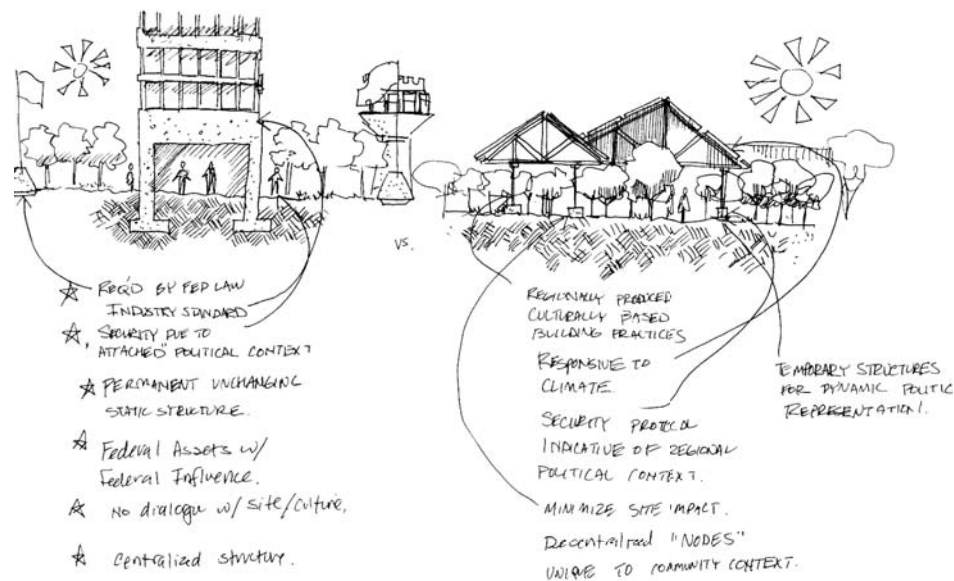 REQ'D BY FED LAW
INDUSTRY STANDARD
SECURITY DUE TO
"ATTACHED" POLITICAL CONTEXT
PERMANENT UNCHANGING
STATIC STRUCTURE.
Federal Assets w/
Federal Influence.
No dialogue w/ site/culture.
Centralized structure.
VS.
REGIONALLY PRODUCED
CULTURALLY BASED
BUILDING PRACTICES
RESPONSIVE TO
CLIMATE.
SECURITY PROTOCOL
INDICATIVE OF REGIONAL
POLITICAL CONTEXT.
MINIMIZE SITE IMPACT.
Decentralized "NODES"
UNIQUE TO COMMUNITY CONTEXT.
TEMPORARY STRUCTURES
FOR DYNAMIC POLITIC
REPRESENTATION.